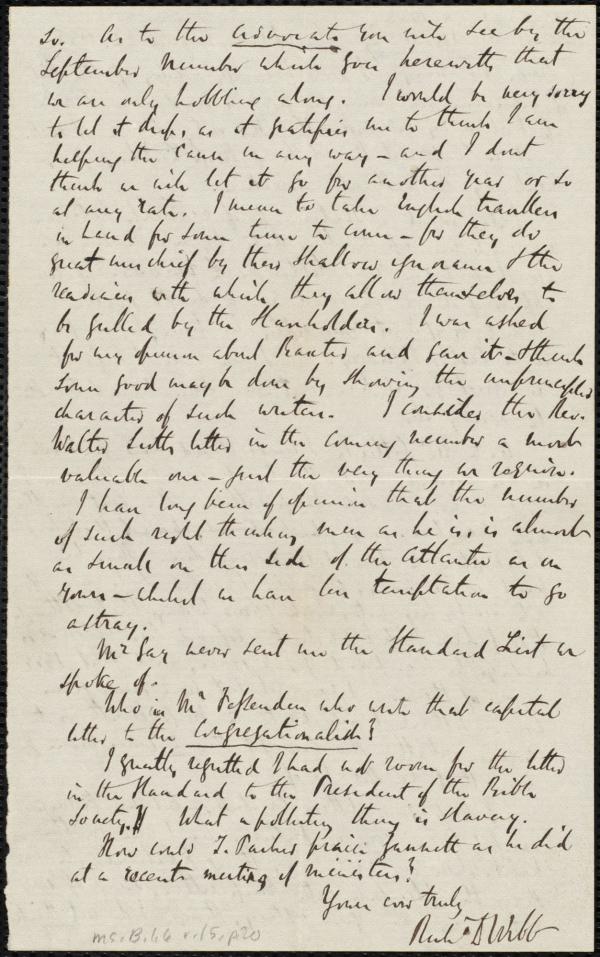 so. As to the Advocate you will see by the
September number which goes herewith that
we are only hobbling along. I would be very sorry
to let it drop, as it gratifies me to think I am
helping the cause in any way – and I don't
think we will let it go for another year or so
at any rate. I mean to take English travellers
in hand for some time to come – for they do
great mischief by their shallow ignorance & the
readiness with which they allow themselves to
be gulled by the Slaveholders. I was asked
for my opinion about Baxter and gave it – I think
some good may be done by showing the unprincipled
character of such writers. I consider the Rev.
Walter Scott's letter in the coming number a most
valuable one – just the very thing we require.
I have long been of opinion that the number
of such right thinking men as he is, is almost
as small on this side of the Atlantic as on
yours – whilst we have less temptation to go
astray.
Mr Gay never sent me the Standard List we
spoke of.
Who is Mr Fessenden who wrote that capital
letter to the Congregationalist?
I greatly regretted I had not room for the letter
in the Standard to the President of the Bible
Society. What a polluting thing is slavery.
How could T. Parker praise Gannett as he did
at a recent meeting of ministers?
Yours ever truly
Richd D Webb
ms. B.1.6 v.15, p20